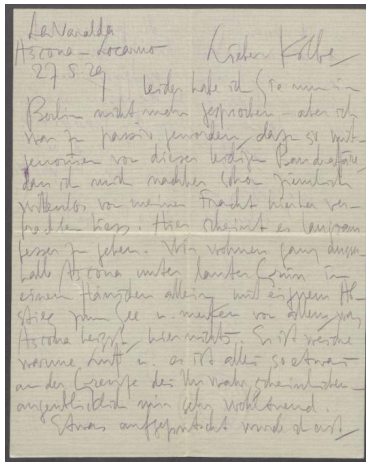 La Varalda
Ascona-Locarno
27 5 29
Lieber Kolbe,
leider habe ich Sie nun in
Berlin nicht mehr gesprochen - aber ich
war zu passiv geworden, dazu so mit-
genommen von dieser leidigen
dass ich mich nachher schon ziemlich
willenlos von meiner Fracht hierher ver-
frachten liess. Hier scheint es langsam
besser zu gehen. Wir wohnen ganz ausser-
halb Ascona unter lauter Grün in
einem Häuschen allein mit eignem Ab-
stieg zum See u. merken von allem, was
Ascona heisst, hier nichts. Es ist weiche
warme Luft u. es ist alles so etwas
an der Grenze des
augenblicklich mir sehr wohltuend.
Etwas aufgepulvert wurde ich erst